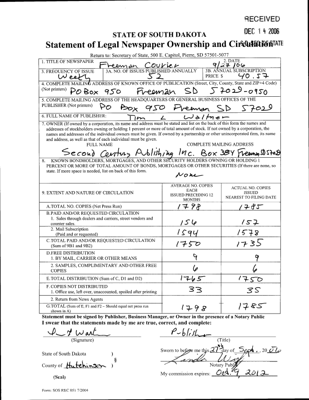 RECEIVED
DEC 14 2006
STATE OF SOUTH DAKOTA
Statement of Legal Newspaper Ownership and Circulation
Return to: Secretary of State, 500 E. Capitol, Pierre, SD 57501-5077
1. TITLE OF NEWSPAPER
Freeman Courier
2. DATE
9/27/06
3. FREQUENCY OF ISSUE
Weekly
3A. NO. OF ISSUES PUBLISHED ANNUALLY
52
3B. ANNUAL SUBSCRIPTION
PRICE $ 40.57
4. COMPLETE MAILING ADDRESS OF KNOWN OFFICE OF PUBLICATION (Street, City, County, State and ZIP+4 Code)
(Not printers) PO Box 950 Freeman SD 57029-0950
5. COMPLETE MAILING ADDRESS OF THE HEADQUARTERS OR GENERAL BUSINESS OFFICES OF THE
PUBLISHER (Not printers) PO Box 950 Freeman SD 57029
6. FULL NAME OF PUBLISHER: Tim L Waltner
7. OWNER (If owned by a corporation, its name and address must be stated and
addresses of stockholders owning or holding 1 percent or more of total amount of stock. If not owned by a corporation, the
names and addresses of the individual owners must be given. If owned by a partnership or other unincorporated firm, its name
and address, as well as that of each individual must be given.
FULL NAME COMPLETE MAILING ADDRESS
Second Century Publishing Inc. Box Freeman
8. KNOWN BONDHOLDERS, MORTGAGES, AND OTHER SECURITY HOLDERS OWNING OR HOLDING 1
PERCENT OR MORE OF TOTAL AMOUNT OF BONDS, MORTGAGES OR OTHER SECURITIES (If there are none, so
state. If more space is needed, list on back of this form.
None
9. EXTENT AND NATURE OF CIRCULATION
AVERAGE NO. COPIES EACH ISSUED PRECEDING 12 MONTHS
ACTUAL NO. COPIES ISSUED NEAREST TO FILING DATE
A. TOTAL NO. COPIES (Net Press Run) 1798 1785
B. PAID AND/OR REQUESTED CIRCULATION
1. Sales through dealers and carriers, street vendors and
counter sales 156 157
2. Mail Subscription
(Paid and/or requested) 1594 1578
C. TOTAL PAID AND/OR REQUESTED CIRCULATION
(Sum of 9B1 and 9B2) 1750 1735
D. FREE DISTRIBUTION
1. BY MAIL, CARRIER OR OTHER MEANS 9 9
2. SAMPLES, COMPLIMENTARY AND OTHER FREE
COPIES 6 6
E. TOTAL DISTRIBUTION (Sum of C, D1 and D2) 1765 1750
F. COPIES NOT DISTRIBUTED
1. Office use, left over, unaccounted, spoiled after printing 33 35
2. Return from News Agents
G. TOTAL (Sum of E, F1 and F2 - Should equal net press run
shown in A) 1798 1785
Statement must be signed by Publisher, Business Manager, or Owner in the presence of a Notary Public
I swear that the statements made by me are true, correct, and complete:
Publisher
(Signature) (Title)
State of South Dakota )
) §
County of Hutchinson )
Sworn to before me this 27 day of Sept. 2006
Notary Public
(Seal)
My commission expires: Oct 9, 2012
Form: SOS REC 051 7/2004